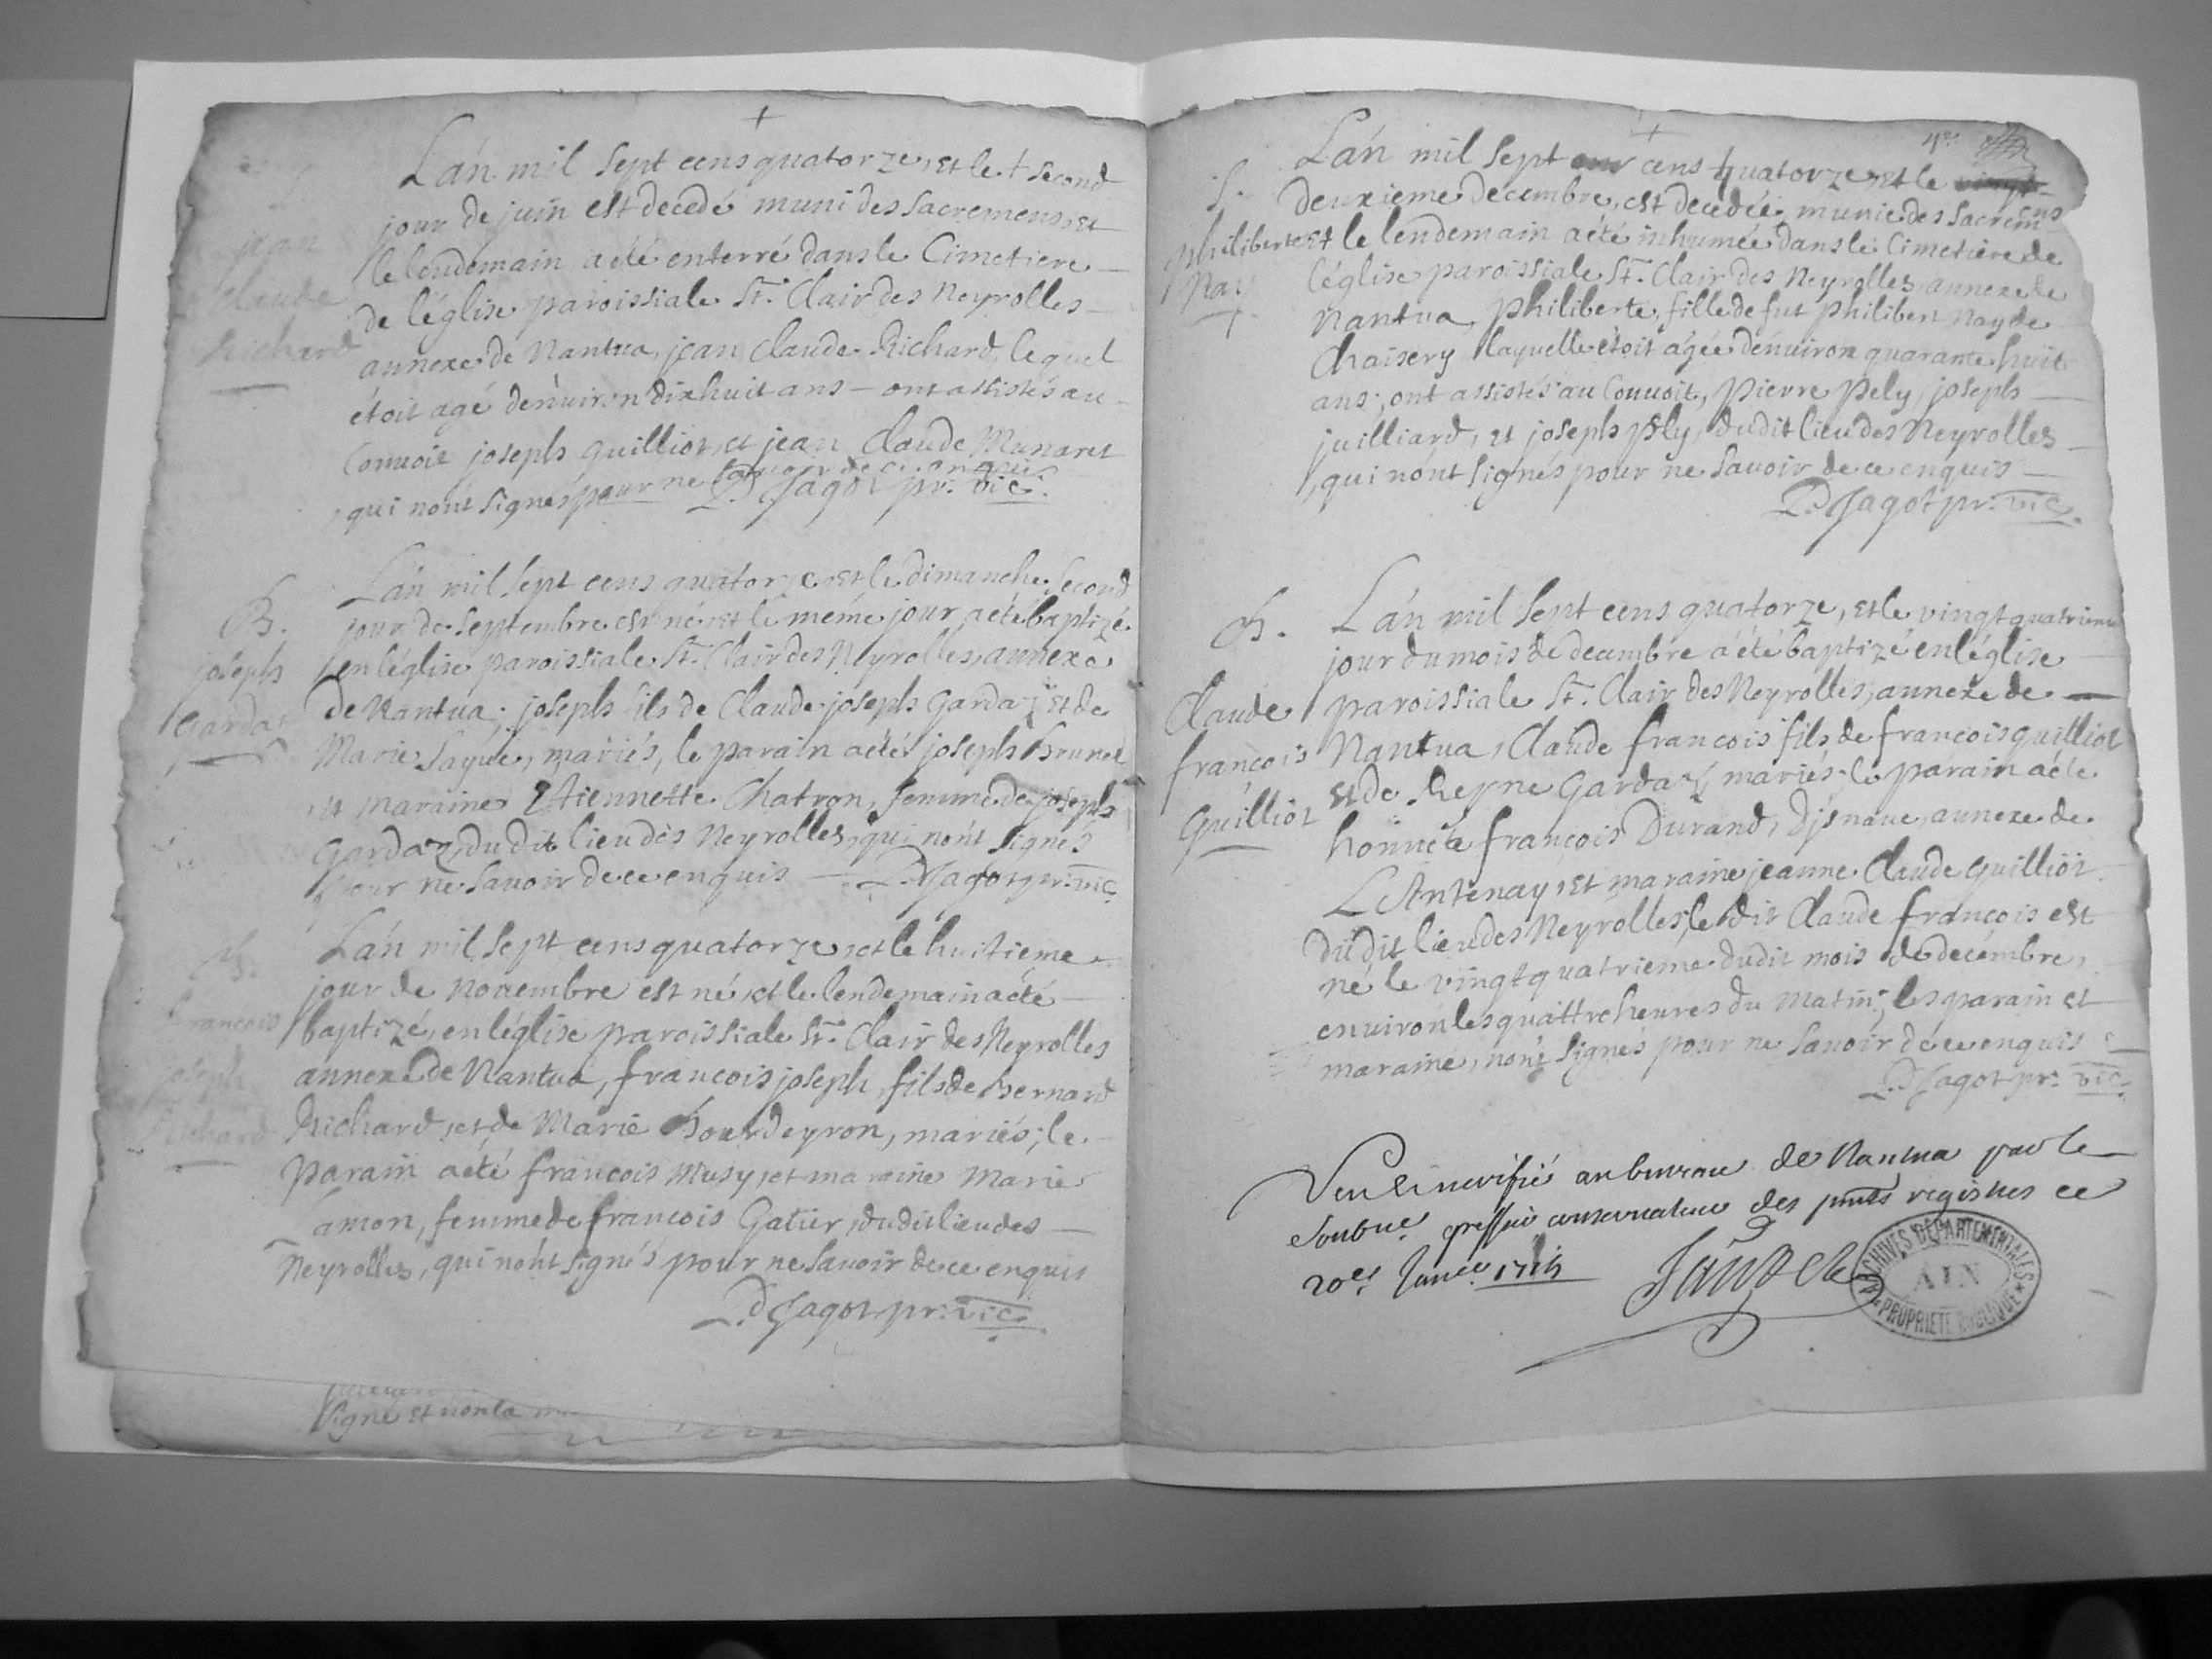 L'an mil sept cens quatorze, et le + second
jour de juin est decedé muni des sacremens, et
le lendemain a été enterré dans le Cimetiere
de l'église paroissiale St. Clair des Neyrolles
annexe de Nantua, jean Claude Richard, lequel
étoit agé d'enuiron dixhuit ans – ont assistés au
Conuoit joseph Guilliot, et jean Claude Munaret
qui n'ont signés pour ne sauoir de ce enquis
D. Jagot pr. vic.
jean
Claude
Richard
L'an mil sept cens quatorze, et le dimanche second
jour de septembre est né et le méme jour a été baptizé
en l'église paroissiale St. Clair des Neyrolles, annexe
de Nantua; joseph fils de Claude joseph Gardaz et de
Marie Sayue, mariés, le parain a été joseph Brunet
et maraine Etiennette Chatron, femme de joseph
Gardaz, du dit lieu des Neyrolles, qui n'ont signés
pour ne sauoir de ce enquis – D. Jagot pr. vic.
B.
joseph
Gardaz
L'an mil sept cens quatorze, et le huitieme
jour de Nouembre est né, et le lendemain a été
baptizé, en l'église paroissiale St. Clair des Neyrolles
annexe de Nantua, francois joseph, fils de Bernard
Richard, et de Marie Bourdeyron, mariés; le
parain a été francois Musy, et maraine Marie
Lamon, femme de francois Gatier, du dit lieu des
Neyrolles, qui n'ont signés pour ne sauoir de ce enquis
D. Jagot pr. vic.
B.
francois
joseph
Richard
signé et non la
4e
L'an mil sept cens quatorze, et le
deuxieme decembre, est decedée, munie des sacremens
et le lendemain a été inhumée dans le Cimetiere de
l'église paroissiale St. Clair des Neyrolles, annexe de
Nantua, Philiberte, fille de fut Philibert Nay de
Chaisery laquelle étoit agée d'enuiron quarante huit
ans; ont assistés au Conuoit, Pierre Pely, joseph
juilliard, et joseph Pely, du dit lieu des Neyrolles
qui n'ont signés pour ne sauoir de ce enquis
D. Jagot pr. vic.
S.
philiberte
Nay
L'an mil sept cens quatorze, et le vingt quatrieme
jour du mois de decembre a été baptizé en l'église
paroissiale St. Clair des Neyrolles, annexe de
Nantua, Claude francois fils de francois Guilliot
et de Reyne Gardaz, mariés; le parain a été
honnete francois Durand, D'jsnaue, annexe de
L'Antenay, et maraine jeanne Claude Guilliot
du dit lieu des Neyrolles, le dit Claude francois est
né le vingt quatrieme du dit mois de decembre,
enuiron les quattre heures du matin; les parain et
maraine, n'ont signés pour ne sauoir de ce enquis
D. Jagot pr. vic.
B.
Claude
francois
Guilliot
Veu et verifié au bureau de Nantua par le
soubné greffier conseruateur des pnts registres ce
20e Janer 1715
ARCHIVES DÉPARTEMENTALES
AIN
PROPRIÉTÉ PUBLIQUE